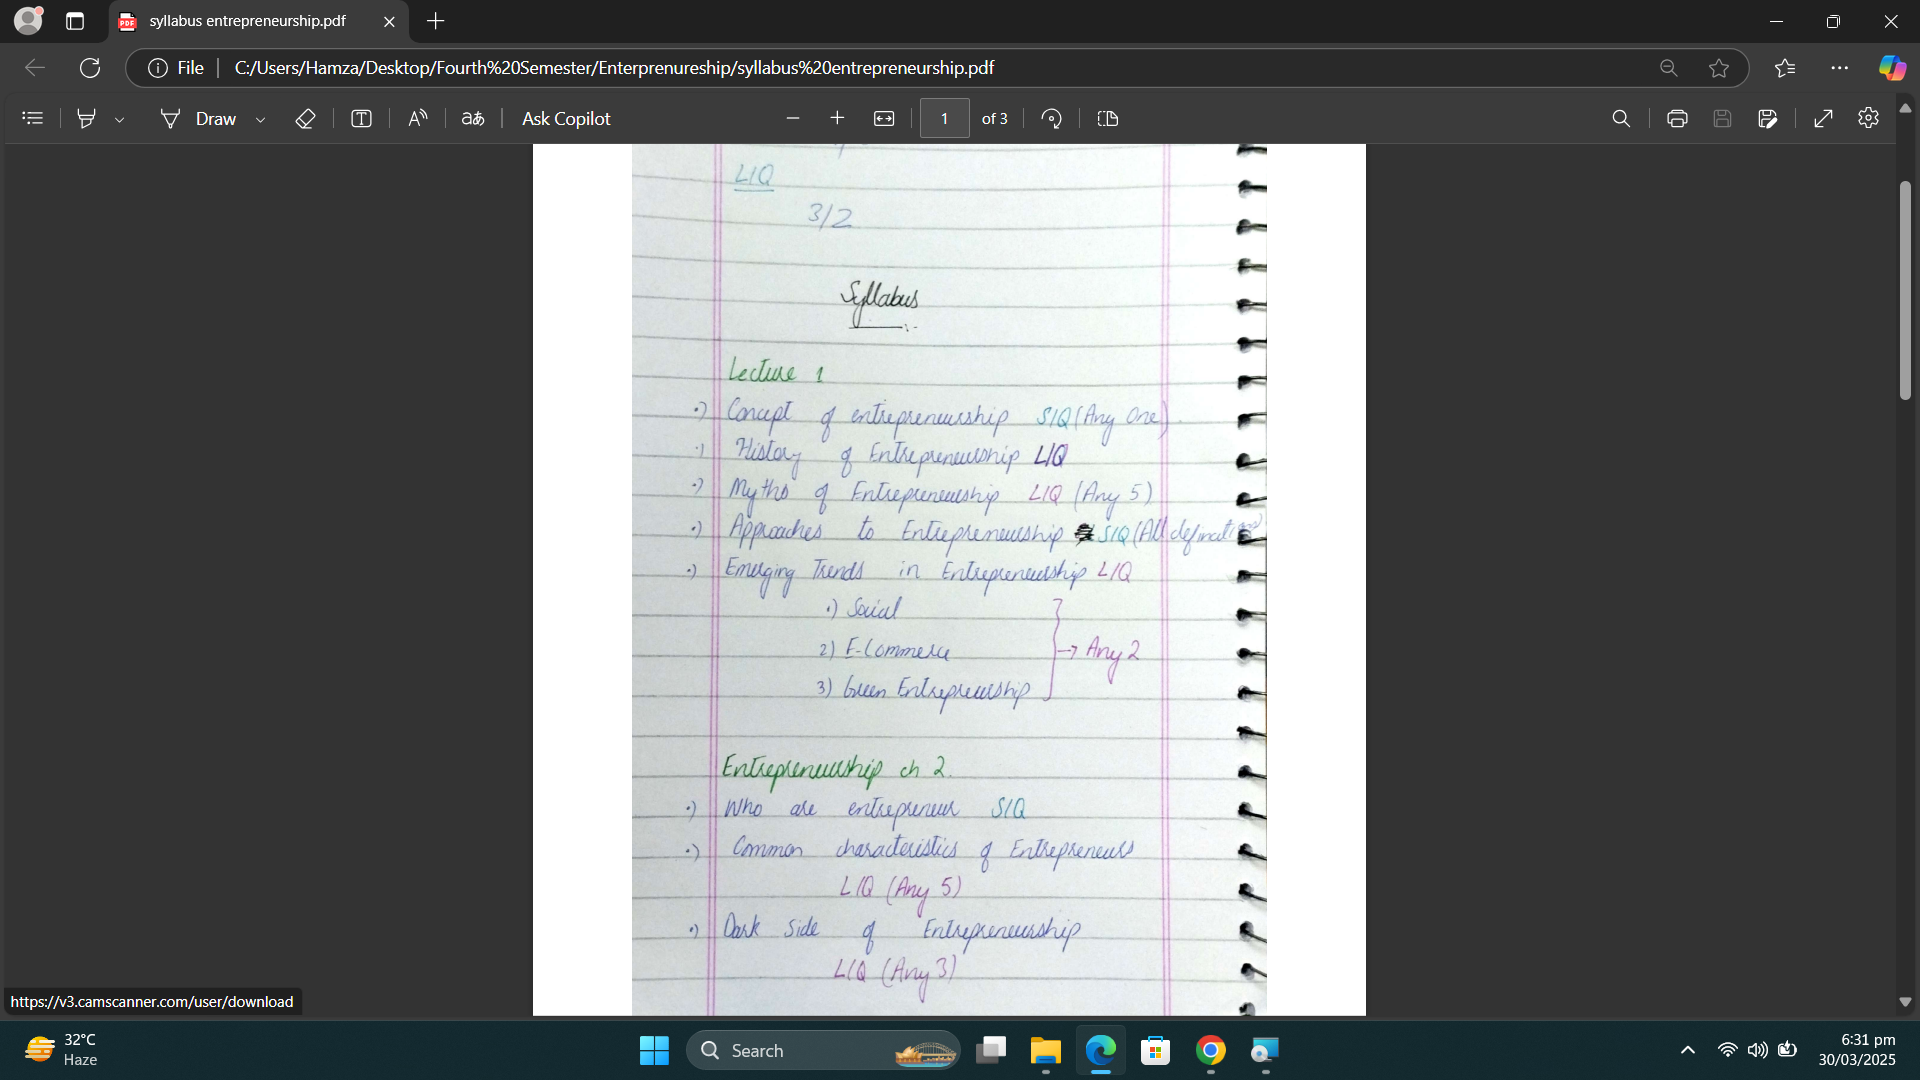 syllabus entrepreneurship.pdf
File
C:/Users/Hamza/Desktop/Fourth%20Semester/Enterprenureship/syllabus%20entrepreneurship.pdf
Draw
Ask Copilot
1 of 3
LIQ
3/2
Syllabus
Lecture 1
•) Concept of entrepreneurship SIQ (Any One).
•) History of Entrepreneurship LIQ
•) Myths of Entrepreneurship LIQ (Any 5)
•) Approaches to Entrepreneurship SIQ (All
•) Emerging Trends in Entrepreneurship LIQ
1) Social
2) E-Commerce
→ Any 2
3) Green Entrepreneurship
Entrepreneurship ch 2.
•) Who are entrepreneur SIQ
•) Common characteristics of Entrepreneurs
LIQ (Any 5)
•) Dark Side of Entrepreneurship
LIQ (Any 3)
https://v3.camscanner.com/user/download
32°C
Haze
Search
6:31 pm
30/03/2025